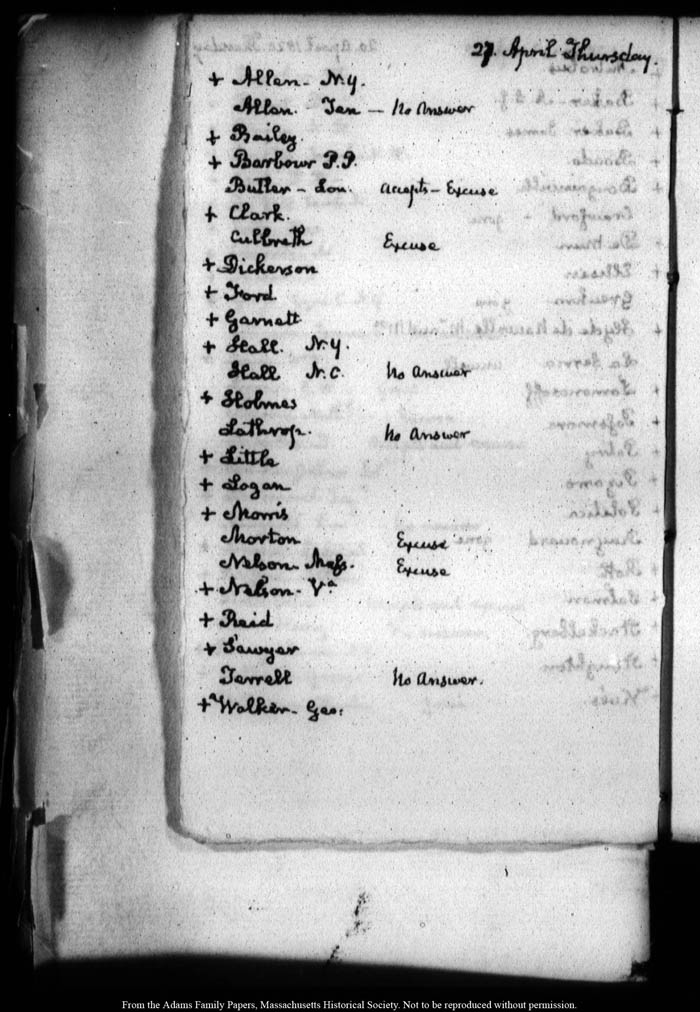 27. April Thursday.
+ Allen - N.Y.
Allen. Ten - No Answer
+ Bailey.
+ Barbour P.P.
Butler - Lou. Accepts - Excuse
+ Clark.
Culbreth Excuse
+ Dickerson
+ Ford
+ Garnett
+ Hall. N.Y.
Hall N.C. No Answer
+ Holmes
Lathrop. No Answer
+ Little
+ Logan
+ Morris
Morton Excuse
Nelson Mass. Excuse
+ Nelson - Va
+ Reid
+ Sawyer
Terrell No Answer.
+ Walker - Geo:
From the Adams Family Papers, Massachusetts Historical Society. Not to be reproduced without permission.